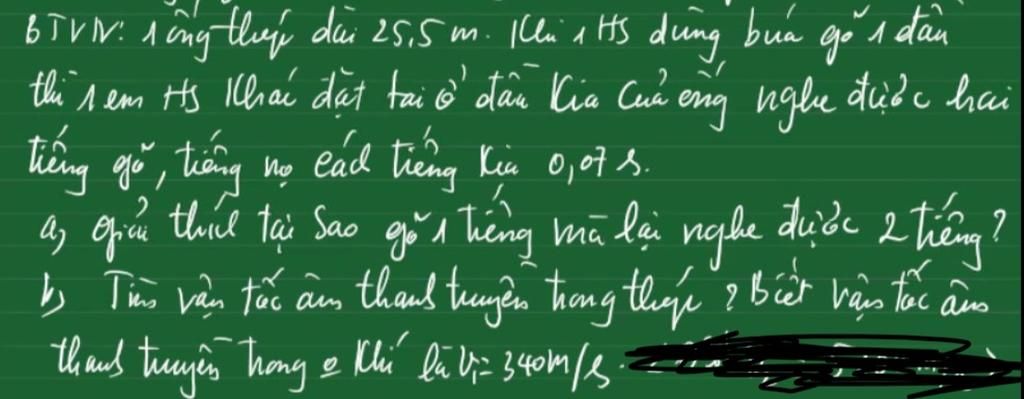 BTVN: 1 ống thép dài 25,5 m. Khi 1 HS dùng búa gõ 1 đầu
thì 1 em HS khác đặt tai ở đầu kia của ống nghe được hai
tiếng gõ, tiếng nọ cách tiếng kia 0,07 s.
a, giải thích tại sao gõ 1 tiếng mà lại nghe được 2 tiếng?
b, Tìm vận tốc âm thanh truyền trong thép? Biết vận tốc âm
thanh truyền trong o khí là V1 = 340m/s.